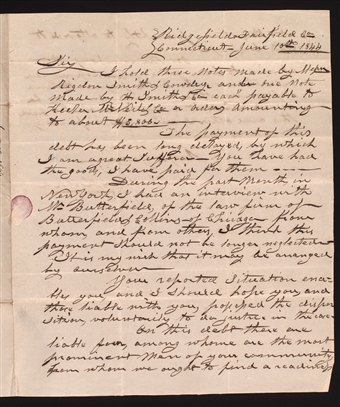 Ridgefield Fairfield Co
Connecticut June 10th 1844
Sir
I hold three Notes made by Messrs
Rigdon Smith & Cowdery and one Note
Made by H Smith & Co each payable to
Keeler & Co or order Amounting
to about $5,800.
The payment of this
debt has been long delayed, by which
I am a great Sufferer — You have had
the goods, I have paid for them —
During the past Month in
New York, I had an interview with
Mr Butterfield, of the law firm of
Butterfield & Collins of Chicago from
whom and from others, I think this
payment should not be longer neglected
It is my wish that it may be arranged
by ourselves
Your reported Situation ena-
bles you, and I should hope you, and
those liable with you, possessed the dispo-
sition, voluntarily to do justice in the case
On this debt there are
liable four, among whom are the most
prominent Men of your community,
from whom we ought to find a readiness